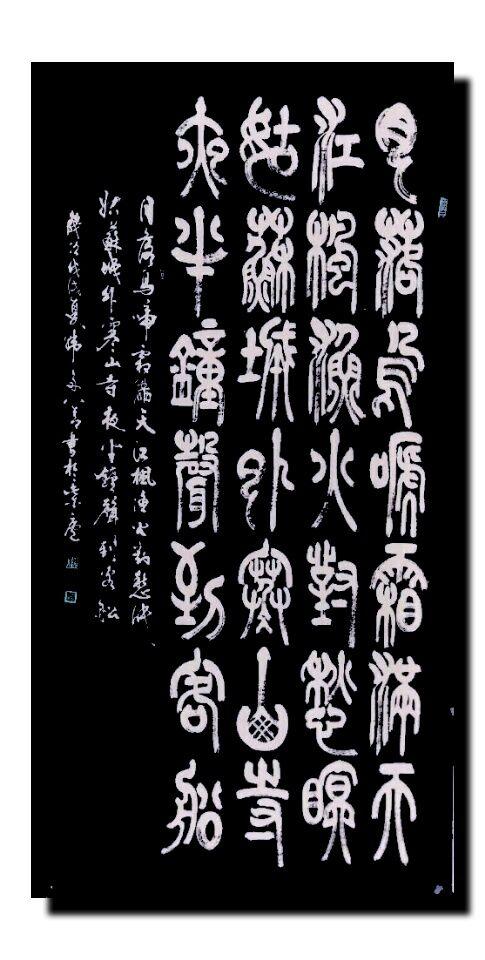 月落烏啼霜滿天
江楓漁火對愁瞑
姑蘇城外寒山寺
夜半鐘聲到客船
月落烏啼霜滿天江楓漁火對愁眠
姑蘇城外寒山寺夜半鐘聲到客船
歲次戊戌夏 書於